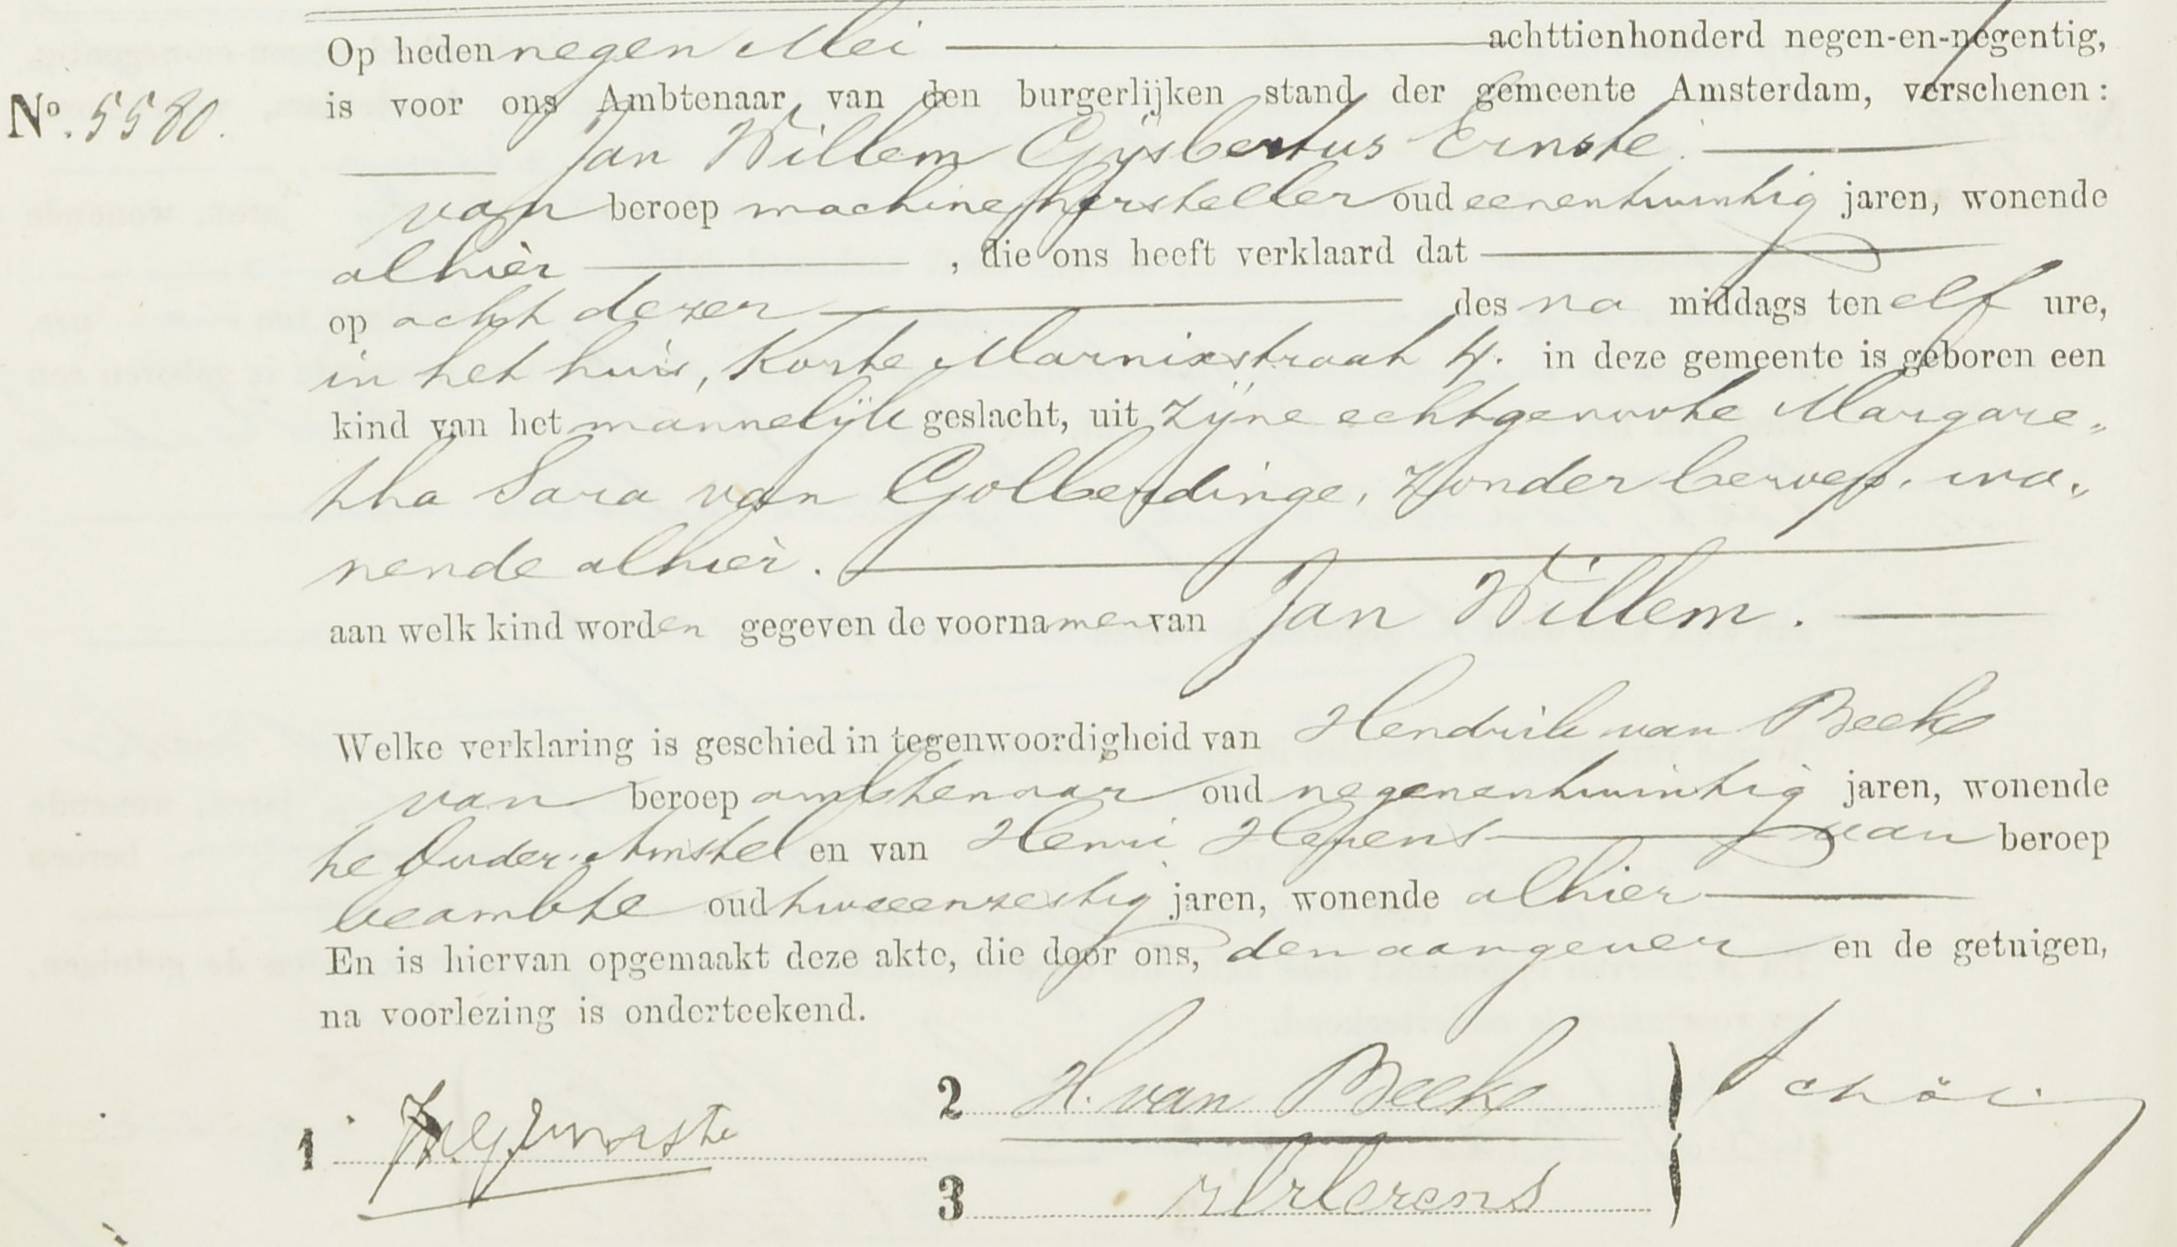 Op heden negen Mei achttienhonderd negen-en-negentig,
No. 5580.
is voor ons Ambtenaar van den burgerlijken stand der gemeente Amsterdam, verschenen:
Jan Willem Gijsbertus Ernste.
van beroep machinehersteller oud eenentwintig jaren, wonende
alhier , die ons heeft verklaard dat
op acht dezer des na middags ten elf ure,
in het huis, Korte Marnixstraat 4. in deze gemeente is geboren een
kind van het mannelijk geslacht, uit zijne echtgenoote Margare„
tha Sara van Golberdinge, zonder beroep, wo„
nende alhier.
aan welk kind worden gegeven de voornamen van Jan Willem.
Welke verklaring is geschied in tegenwoordigheid van Hendrik van Beek
van beroep ambtenaar oud negenentwintig jaren, wonende
te Ouder-Amstel en van Henri van beroep
beambte oud tweeenzestig jaren, wonende alhier
En is hiervan opgemaakt deze akte, die door ons, den aangever en de getuigen,
na voorlezing is onderteekend.
1 JWGErnste
2 H. van Beek
3